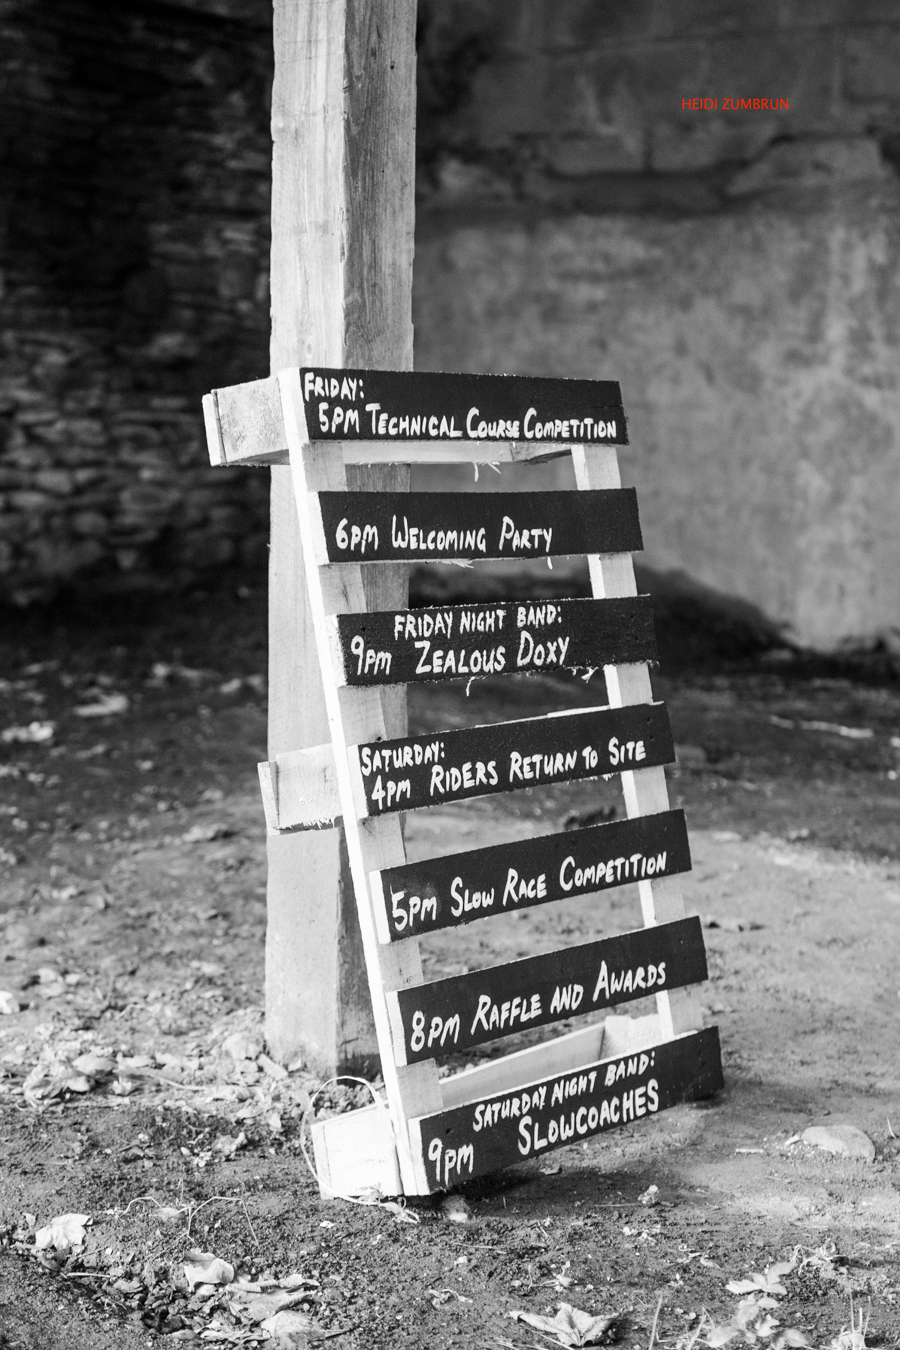 HEIDI ZUMBRUN
FRIDAY:
5PM TECHNICAL COURSE COMPETITION
6PM WELCOMING PARTY
FRIDAY NIGHT BAND:
9PM ZEALOUS DOXY
SATURDAY:
4PM RIDERS RETURN TO SITE
5PM SLOW RACE COMPETITION
8PM RAFFLE AND AWARDS
SATURDAY NIGHT BAND:
9PM SLOWCOACHES